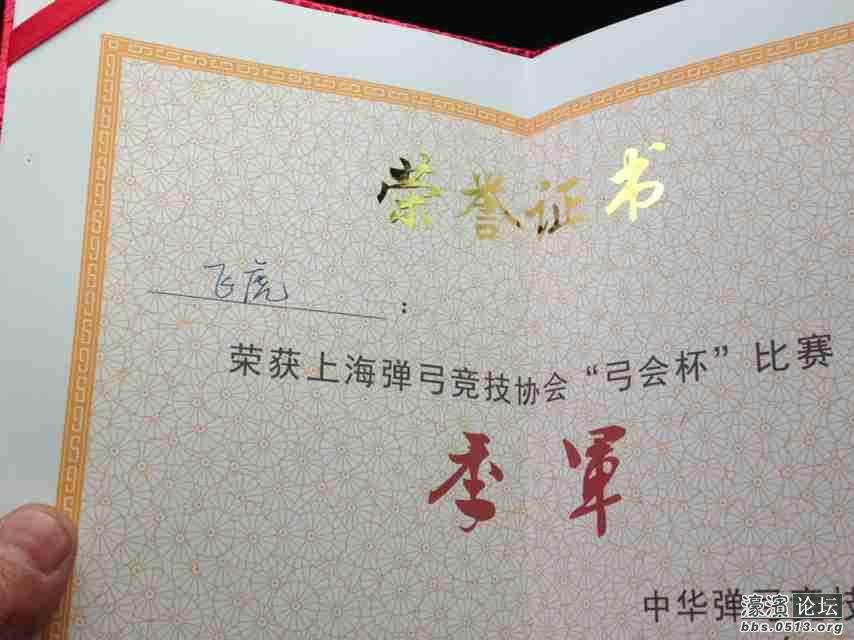 荣誉证书
飞虎：
荣获上海弹弓竞技协会“弓会杯”比赛
季軍
中华弹弓竞技
濠滨论坛
bbs.0513.org